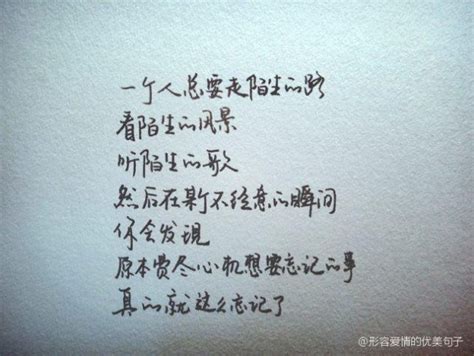 一个人总要走陌生的路
看陌生的风景
听陌生的歌
然后在某个不经意的瞬间
你会发现
原本费尽心机想要忘记的事
真的就这么忘记了
@形容爱情的优美句子